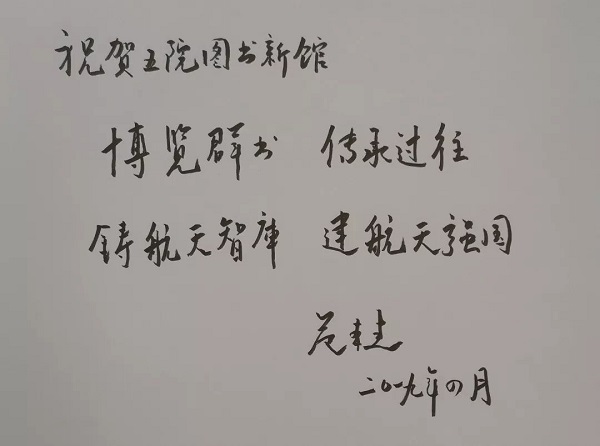 祝贺五院图书新馆
博览群书 传承过往
铸航天智庫 建航天强国
范
二〇一九年四月